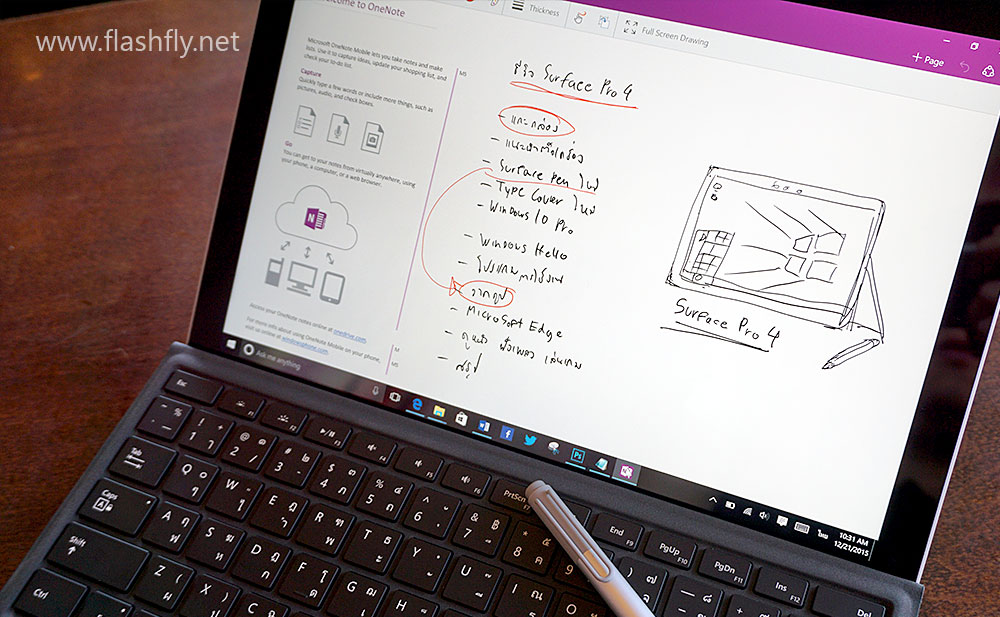 www.flashfly.net
Welcome to OneNote
Thickness
Full Screen Drawing
+ Page
Microsoft OneNote Mobile lets you take notes and make
lists. Use it to capture ideas, update your shopping list, and
check your to-do list.
MS
Capture
Quickly type a few words or include more things, such as
pictures, audio, and check boxes.
Go
You can get to your notes from virtually anywhere, using
your phone, a computer, or a web browser.
N
Access your OneNote notes online at onedrive.com.
For more info about using OneNote Mobile on your phone,
visit us online at windowsphone.com.
M
MS
รีวิว Surface Pro 4
- แกะกล่อง
- แนะนำตัวเครื่อง
- Surface Pen ใหม่
- Type Cover ใหม่
- Windows 10 Pro
- Windows Hello
- วาดรูป
- Microsoft Edge
- ดูหนัง ฟังเพลง เล่นเกม
- สรุป
Surface Pro 4
Ask me anything
Ps
ไทย
10:31 AM
12/21/2015
Esc
F1
F2
F3
F4
F5
F6
PrtScn
F7
End
F9
PgUp
F10
PgDn
F11
Ins
F12
Del
Tab
Caps
Shift
Ctrl
Q W E R T Y U
A S D F G H
Z X C